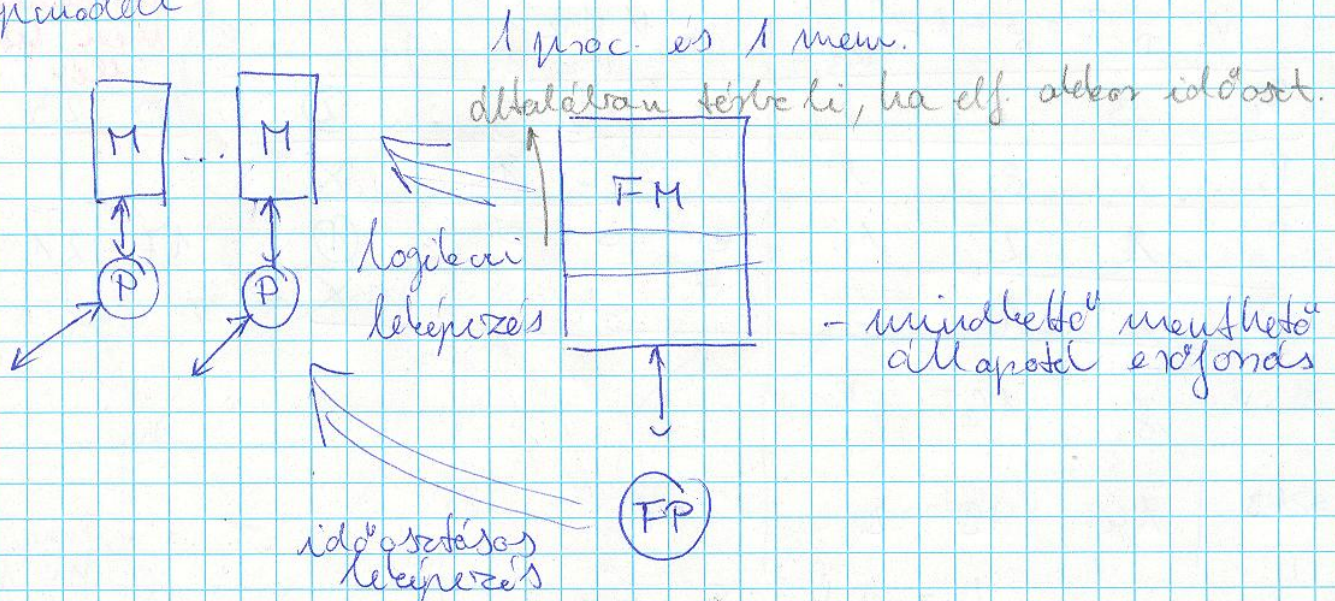 1 proc. és 1 mem.
általában térbeli, ha elf. akkor időoszt.
M ... M
FM
logikai
leképezés
P P
- mindkettő menthető
állapotú erőforrás
FP
időosztásos
leképezés